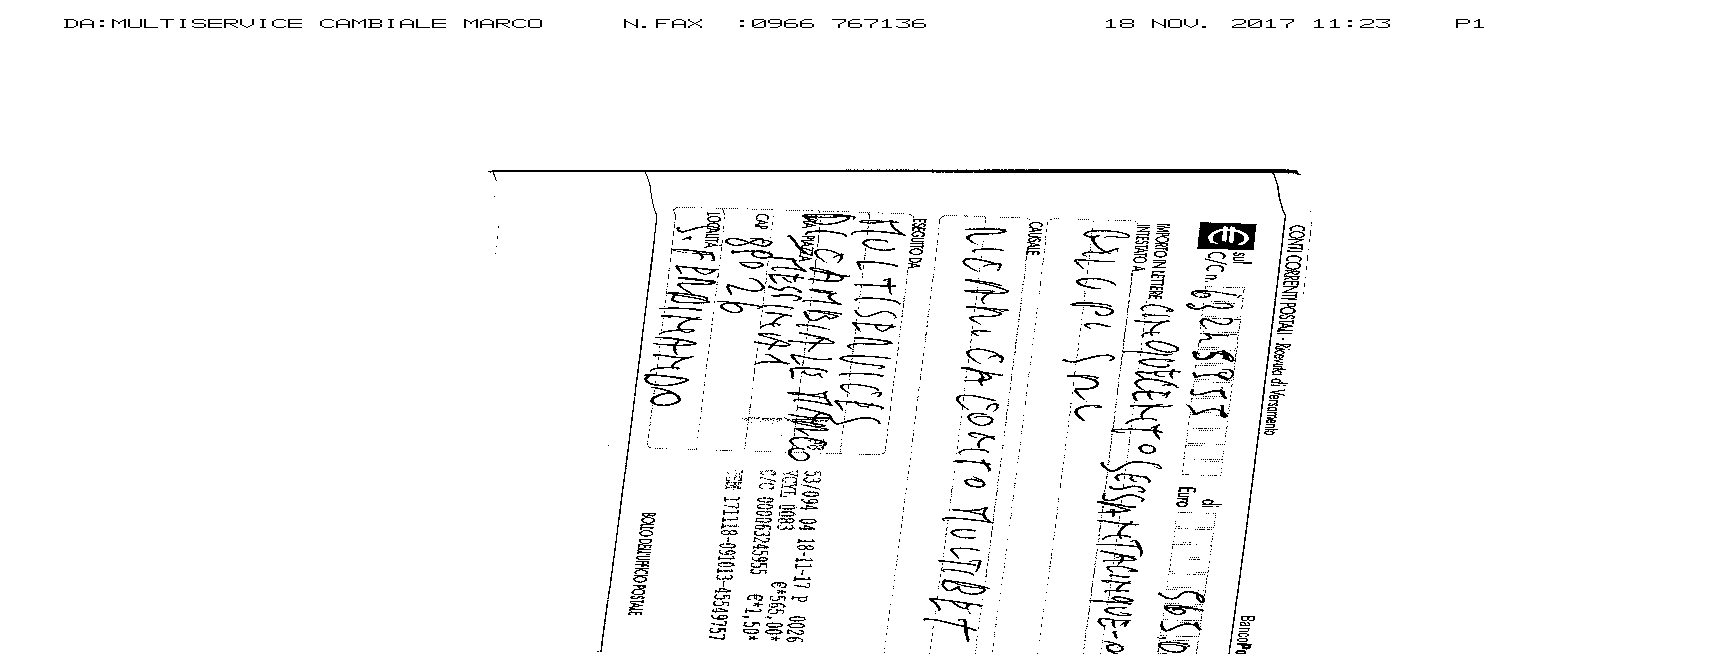 DA:MULTISERVICE CAMBIALE MARCO N.FAX :0966 767136 18 NOV. 2017 11:23 P1
CONTI CORRENTI POSTALI - Ricevuta di Versamento
BancoPo
€ sul C/C n. 63245955 di Euro 565,0
IMPORTO IN LETTERE CINQUECENTOSESSANTACINQUE-0
INTESTATO A
CAUSALE
RICARICA CONTO MULTIBET
ESEGUITO DA
MULTISERVICES
DI CAMBIALE MARCO
VIA - PIAZZA
MESSINA
CAP
LOCALITÀ
S. FERDINANDO
53/094 04 18-11-17 P 0026
VCYL 0083 €*565,00*
C/C 000063245955 €*1,50*
171118-091013-45549757
BOLLO DELL'UFFICIO POSTALE